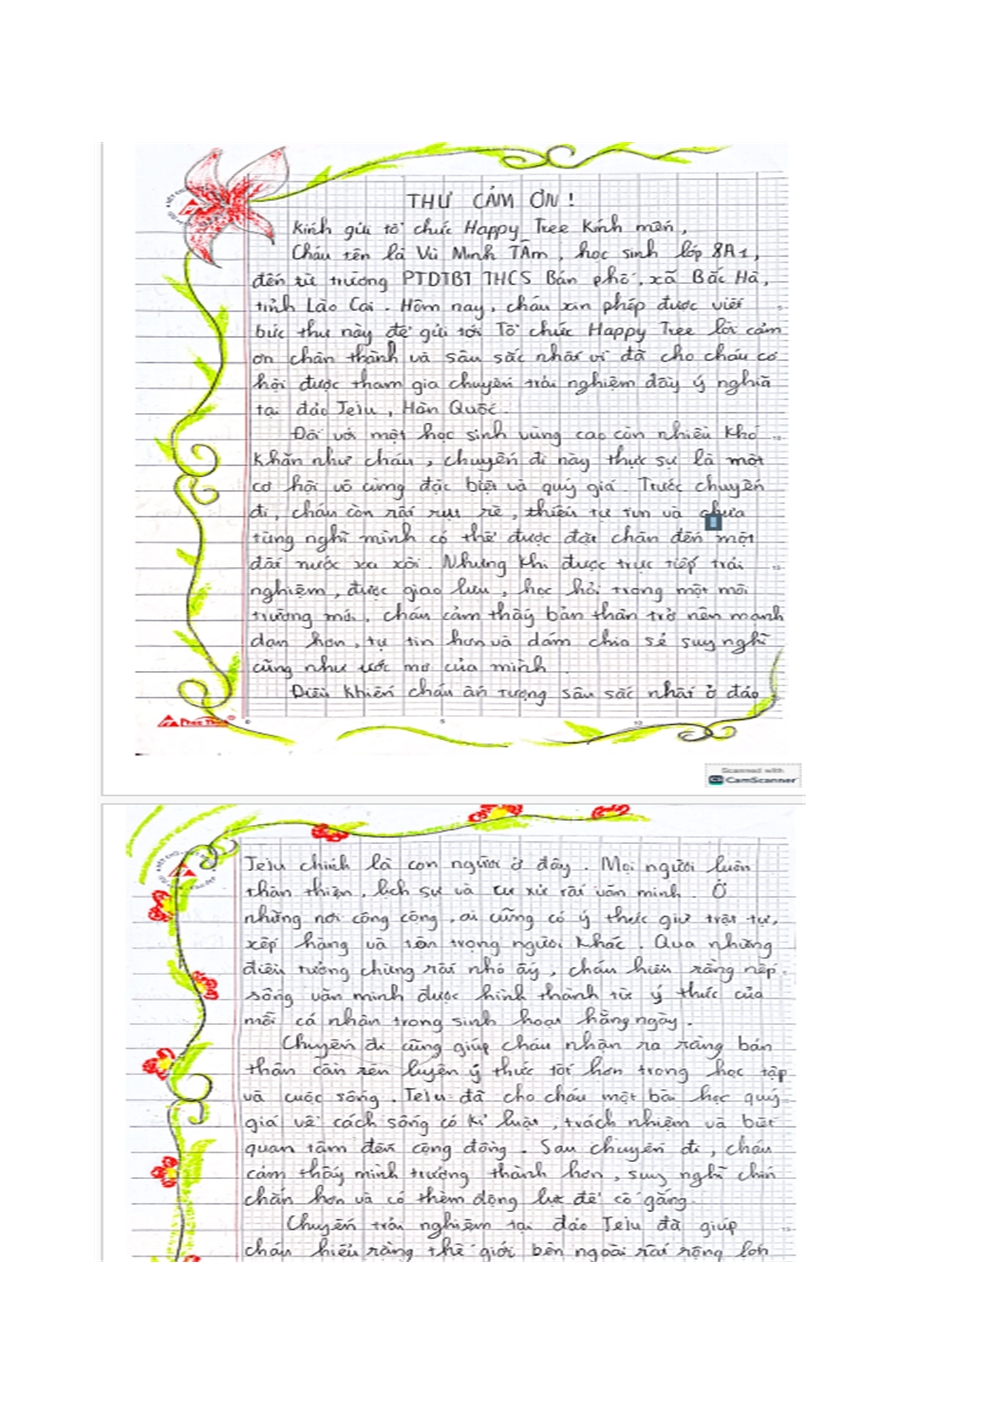 THƯ CẢM ƠN !
Kính gửi tổ chức Happy Tree Kính mến,
Cháu tên là Vù Minh TÂm, học sinh lớp 8A1,
đến từ trường PTDTBT THCS Bản phố, xã Bắc Hà,
tỉnh Lào Cai. Hôm nay, cháu xin phép được viết
bức thư này để gửi tới Tổ chức Happy Tree lời cảm
ơn chân thành và sâu sắc nhất vì đã cho cháu cơ
hội được tham gia chuyến trải nghiệm đầy ý nghĩa
tại đảo Jeju, Hàn Quốc.
Đối với một học sinh vùng cao còn nhiều khó
khăn như cháu, chuyến đi này thực sự là một
cơ hội vô cùng đặc biệt và quý giá. Trước chuyến
đi, cháu còn rất rụt rè, thiếu tự tin và chưa
từng nghĩ mình có thể được đặt chân đến một
đất nước xa xôi. Nhưng khi được trực tiếp trải
nghiệm, được giao lưu, học hỏi trong một môi
trường mới, cháu cảm thấy bản thân trở nên mạnh
dạn hơn, tự tin hơn và dám chia sẻ suy nghĩ
cũng như ước mơ của mình.
Điều khiến cháu ấn tượng sâu sắc nhất ở đảo
Scanned with
CS CamScanner
Jeju chính là con người ở đây. Mọi người luôn
thân thiện, lịch sự và cư xử rất văn minh. Ở
những nơi công cộng, ai cũng có ý thức giữ trật tự,
xếp hàng và tôn trọng người khác. Qua những
điều tưởng chừng rất nhỏ ấy, cháu hiểu rằng nếp
sống văn minh được hình thành từ ý thức của
mỗi cá nhân trong sinh hoạt hằng ngày.
Chuyến đi cũng giúp cháu nhận ra rằng bản
thân cần rèn luyện ý thức tốt hơn trong học tập
và cuộc sống. Jeju đã cho cháu một bài học quý
giá về cách sống có kỉ luật, trách nhiệm và biết
quan tâm đến cộng đồng. Sau chuyến đi, cháu
cảm thấy mình trưởng thành hơn, suy nghĩ chín
chắn hơn và có thêm động lực để cố gắng.
Chuyến trải nghiệm tại đảo Jeju đã giúp
cháu hiểu rằng thế giới bên ngoài rất rộng lớn